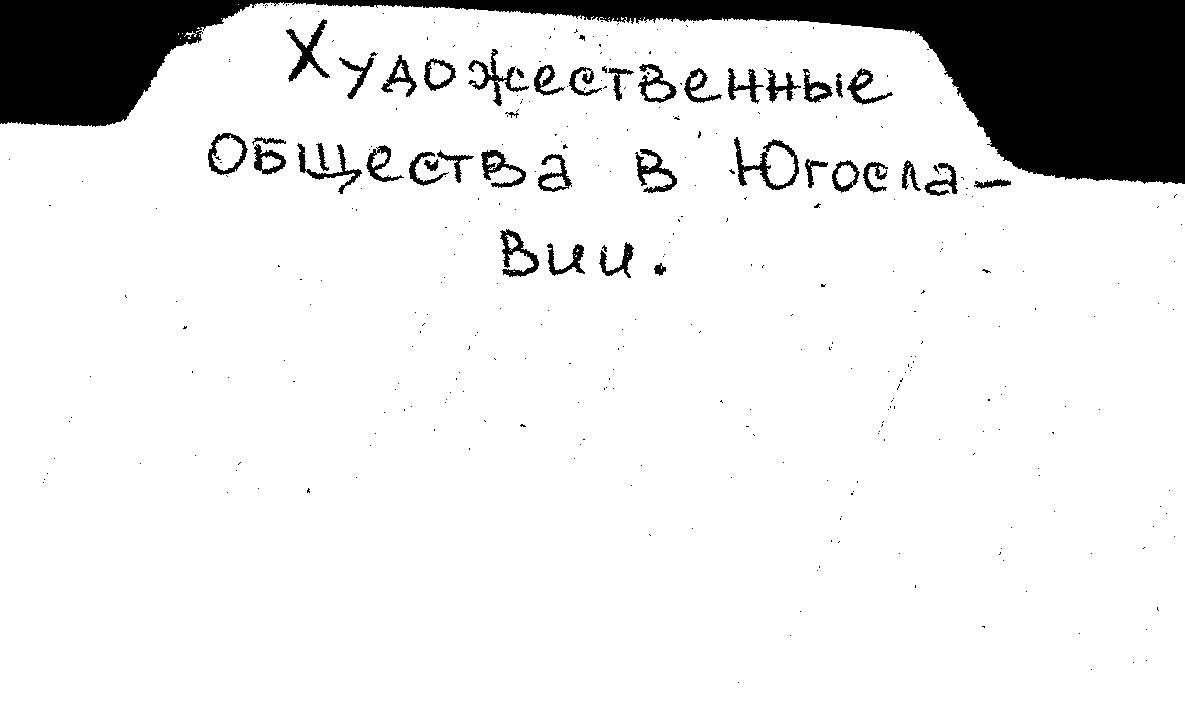 Художественные
общества в Югосла-
вии.